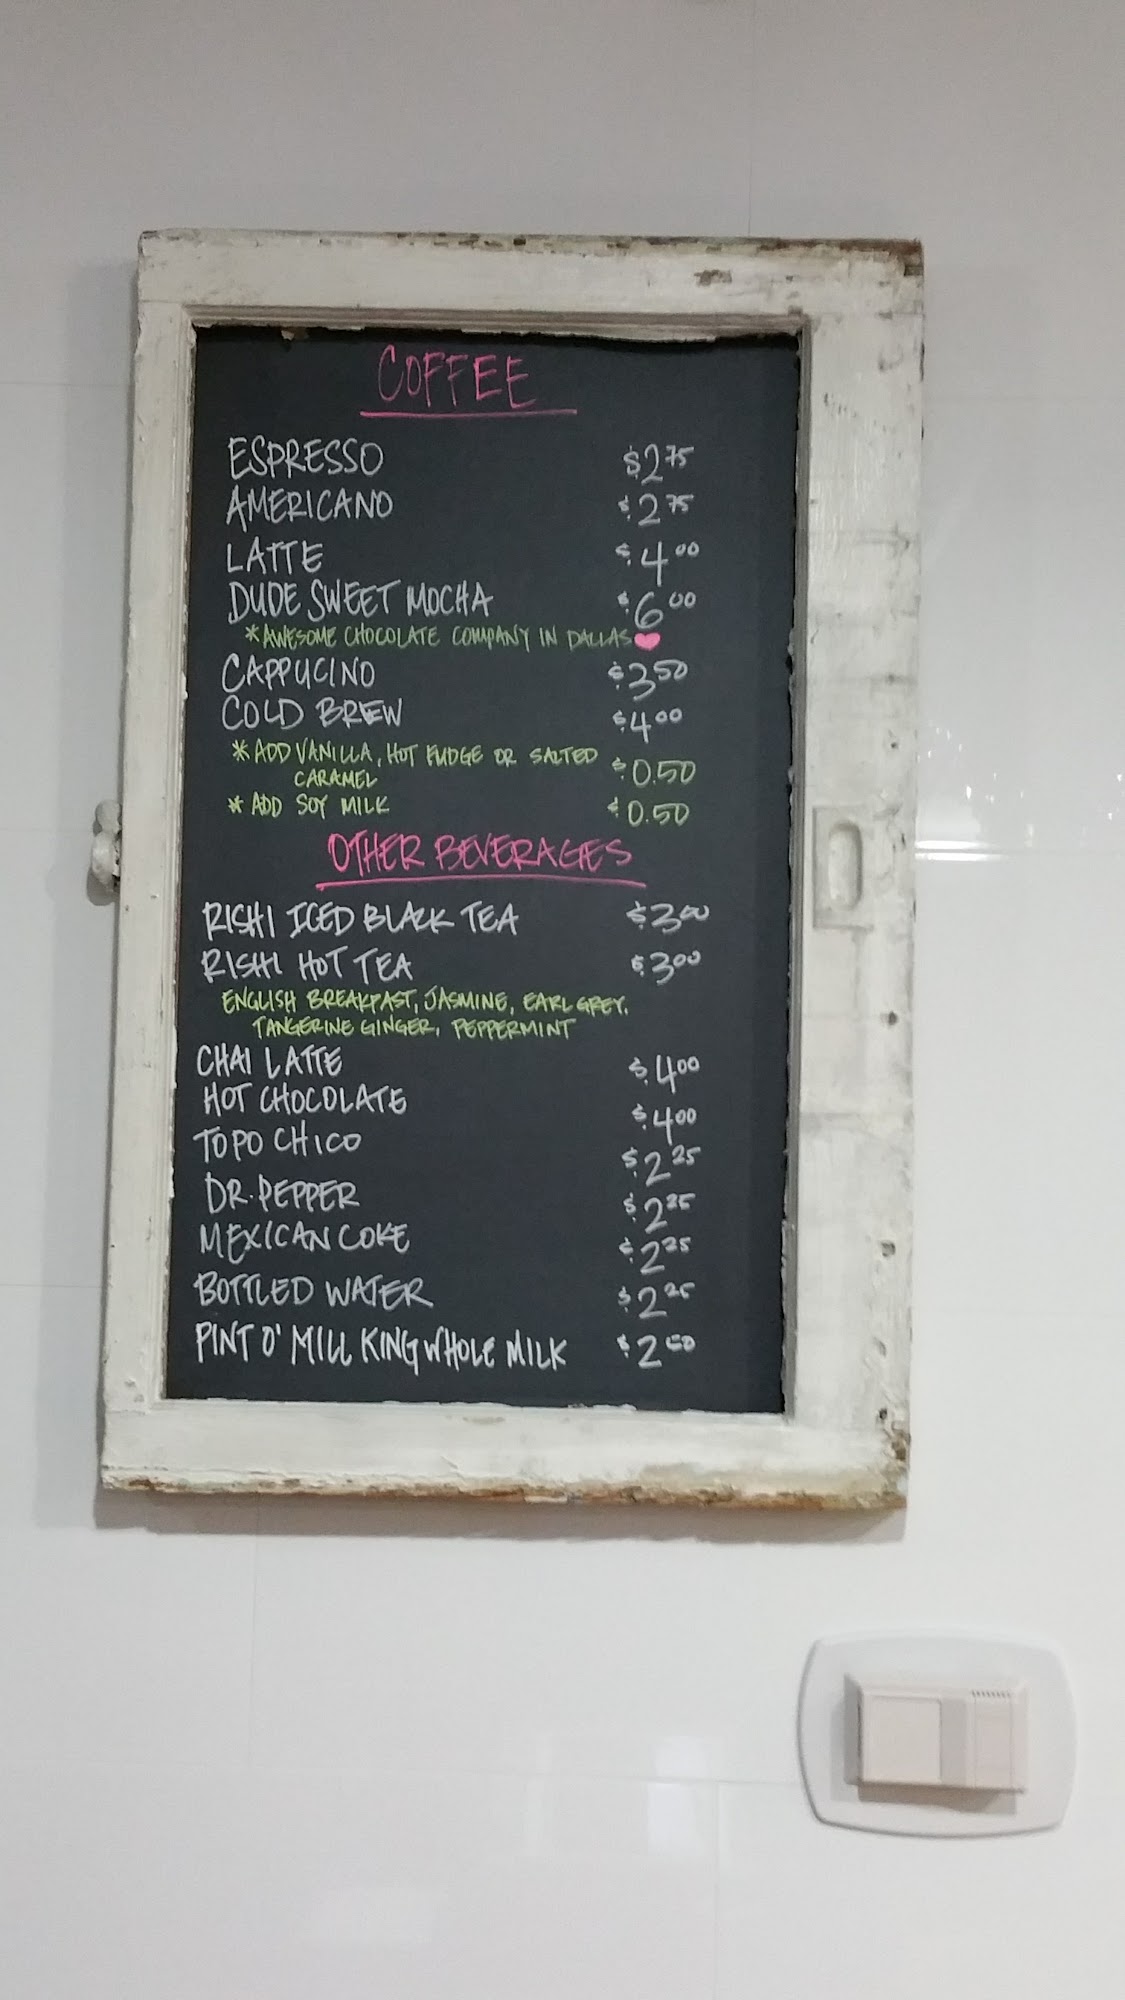 COFFEE
ESPRESSO $2.75
AMERICANO $2.75
LATTE $4.00
DUDE SWEET MOCHA $6.00
*AWESOME CHOCOLATE COMPANY IN DALLAS ♥
CAPPUCINO $3.50
COLD BREW $4.00
*ADD VANILLA, HOT FUDGE OR SALTED $0.50
CARAMEL
*ADD SOY MILK $0.50
OTHER BEVERAGES
RISHI ICED BLACK TEA $3.00
RISHI HOT TEA $3.00
ENGLISH BREAKFAST, JASMINE, EARL GREY,
TANGERINE GINGER, PEPPERMINT
CHAI LATTE $4.00
HOT CHOCOLATE $4.00
TOPO CHICO $2.25
DR. PEPPER $2.25
MEXICAN COKE $2.25
BOTTLED WATER $2.25
PINT O' MILL KING WHOLE MILK $2.50